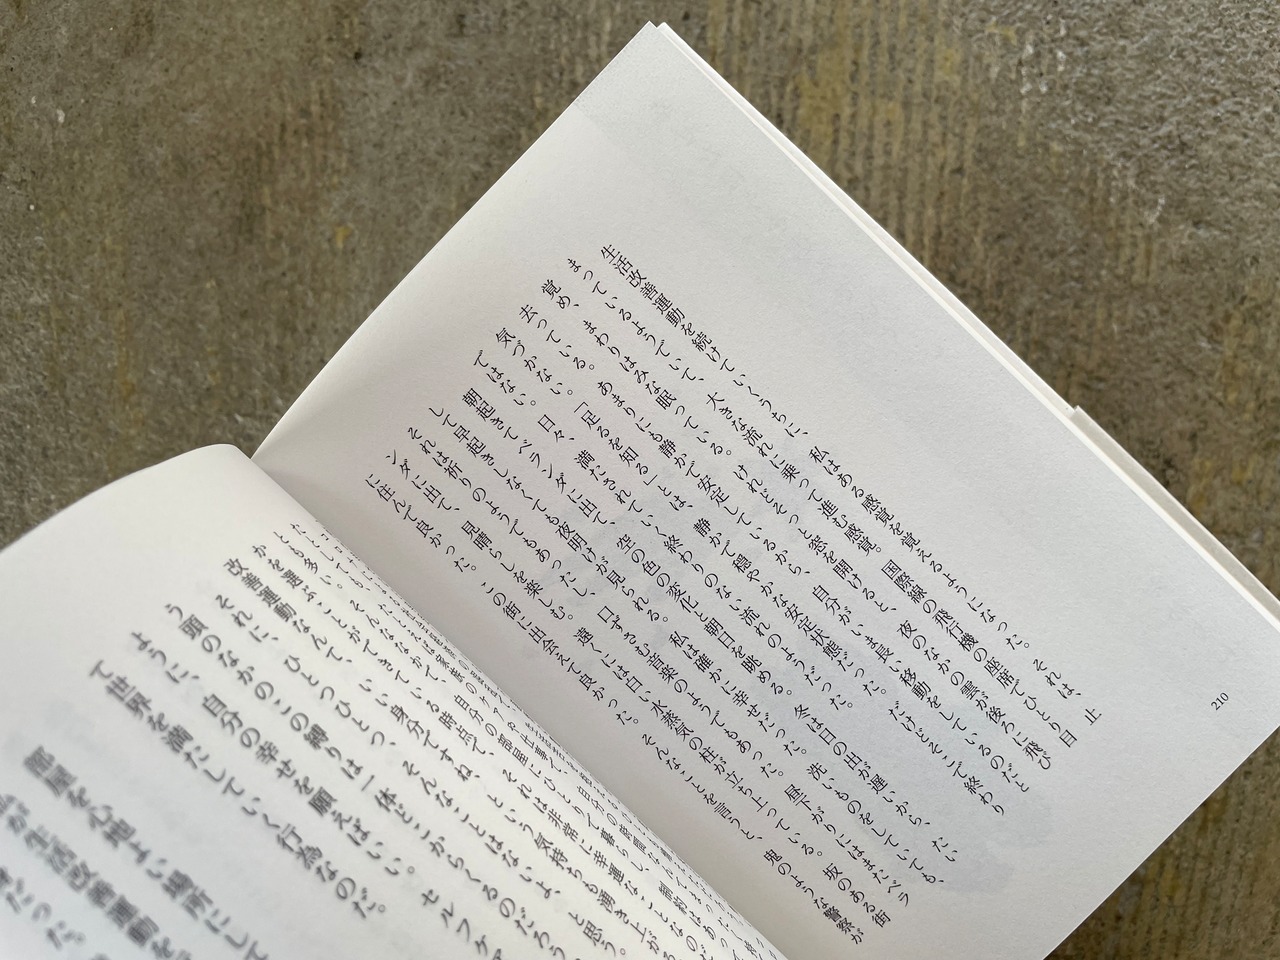 生活改善運動を続けていくうちに、私はある感覚を覚えるようになった。それは、止
まっているようでいて、大きな流れに乗って進む感覚。国際線の飛行機の座席でひとり目
覚め、まわりはみな眠っている。けれどそっと窓を開けると、夜のなかの雲が後ろに飛び
去っている。あまりにも静かで安定しているから、自分がいま長い移動をしているのだと
気づかない。「足るを知る」とは、静かで穏やかな安定状態だった。だけどそこで終わり
ではない。日々、満たされていく終わりのない流れのようだった。
朝起きてベランダに出て、空の色の変化と朝日を眺める。冬は日の出が遅いから、たい
して早起きしなくても夜明けが見られる。私は確かに幸せだった。洗いものをしていても、
それは祈りのようでもあったし、口ずさむ音楽のようでもあった。昼下がりにはまたベラ
ンダに出て、見晴らしを楽しむ。遠くには白い水蒸気の柱が立ち上っている。坂のある街
に住んで良かった。この街に出会えて良かった。そんなことを言うと、鬼のような警察が
210
とも多い。そんななかで、自分の部屋にひとりで暮らし、制約はあって
かを選ぶことができている時点で、それは非常に幸運なことなのだ
改善運動なんて、いい身分ですね、という気持ちも湧き上が
それに、ひとつひとつ、そんなことはないよ、と思う。
う頭のなかのこの縛りは一体どこからくるのだろう
ように、自分の幸せを願えばいい。セルフケア
て世界を満たしていく行為なのだ。
部屋を心地よい場所にして
私が生活改善運動を
だった。